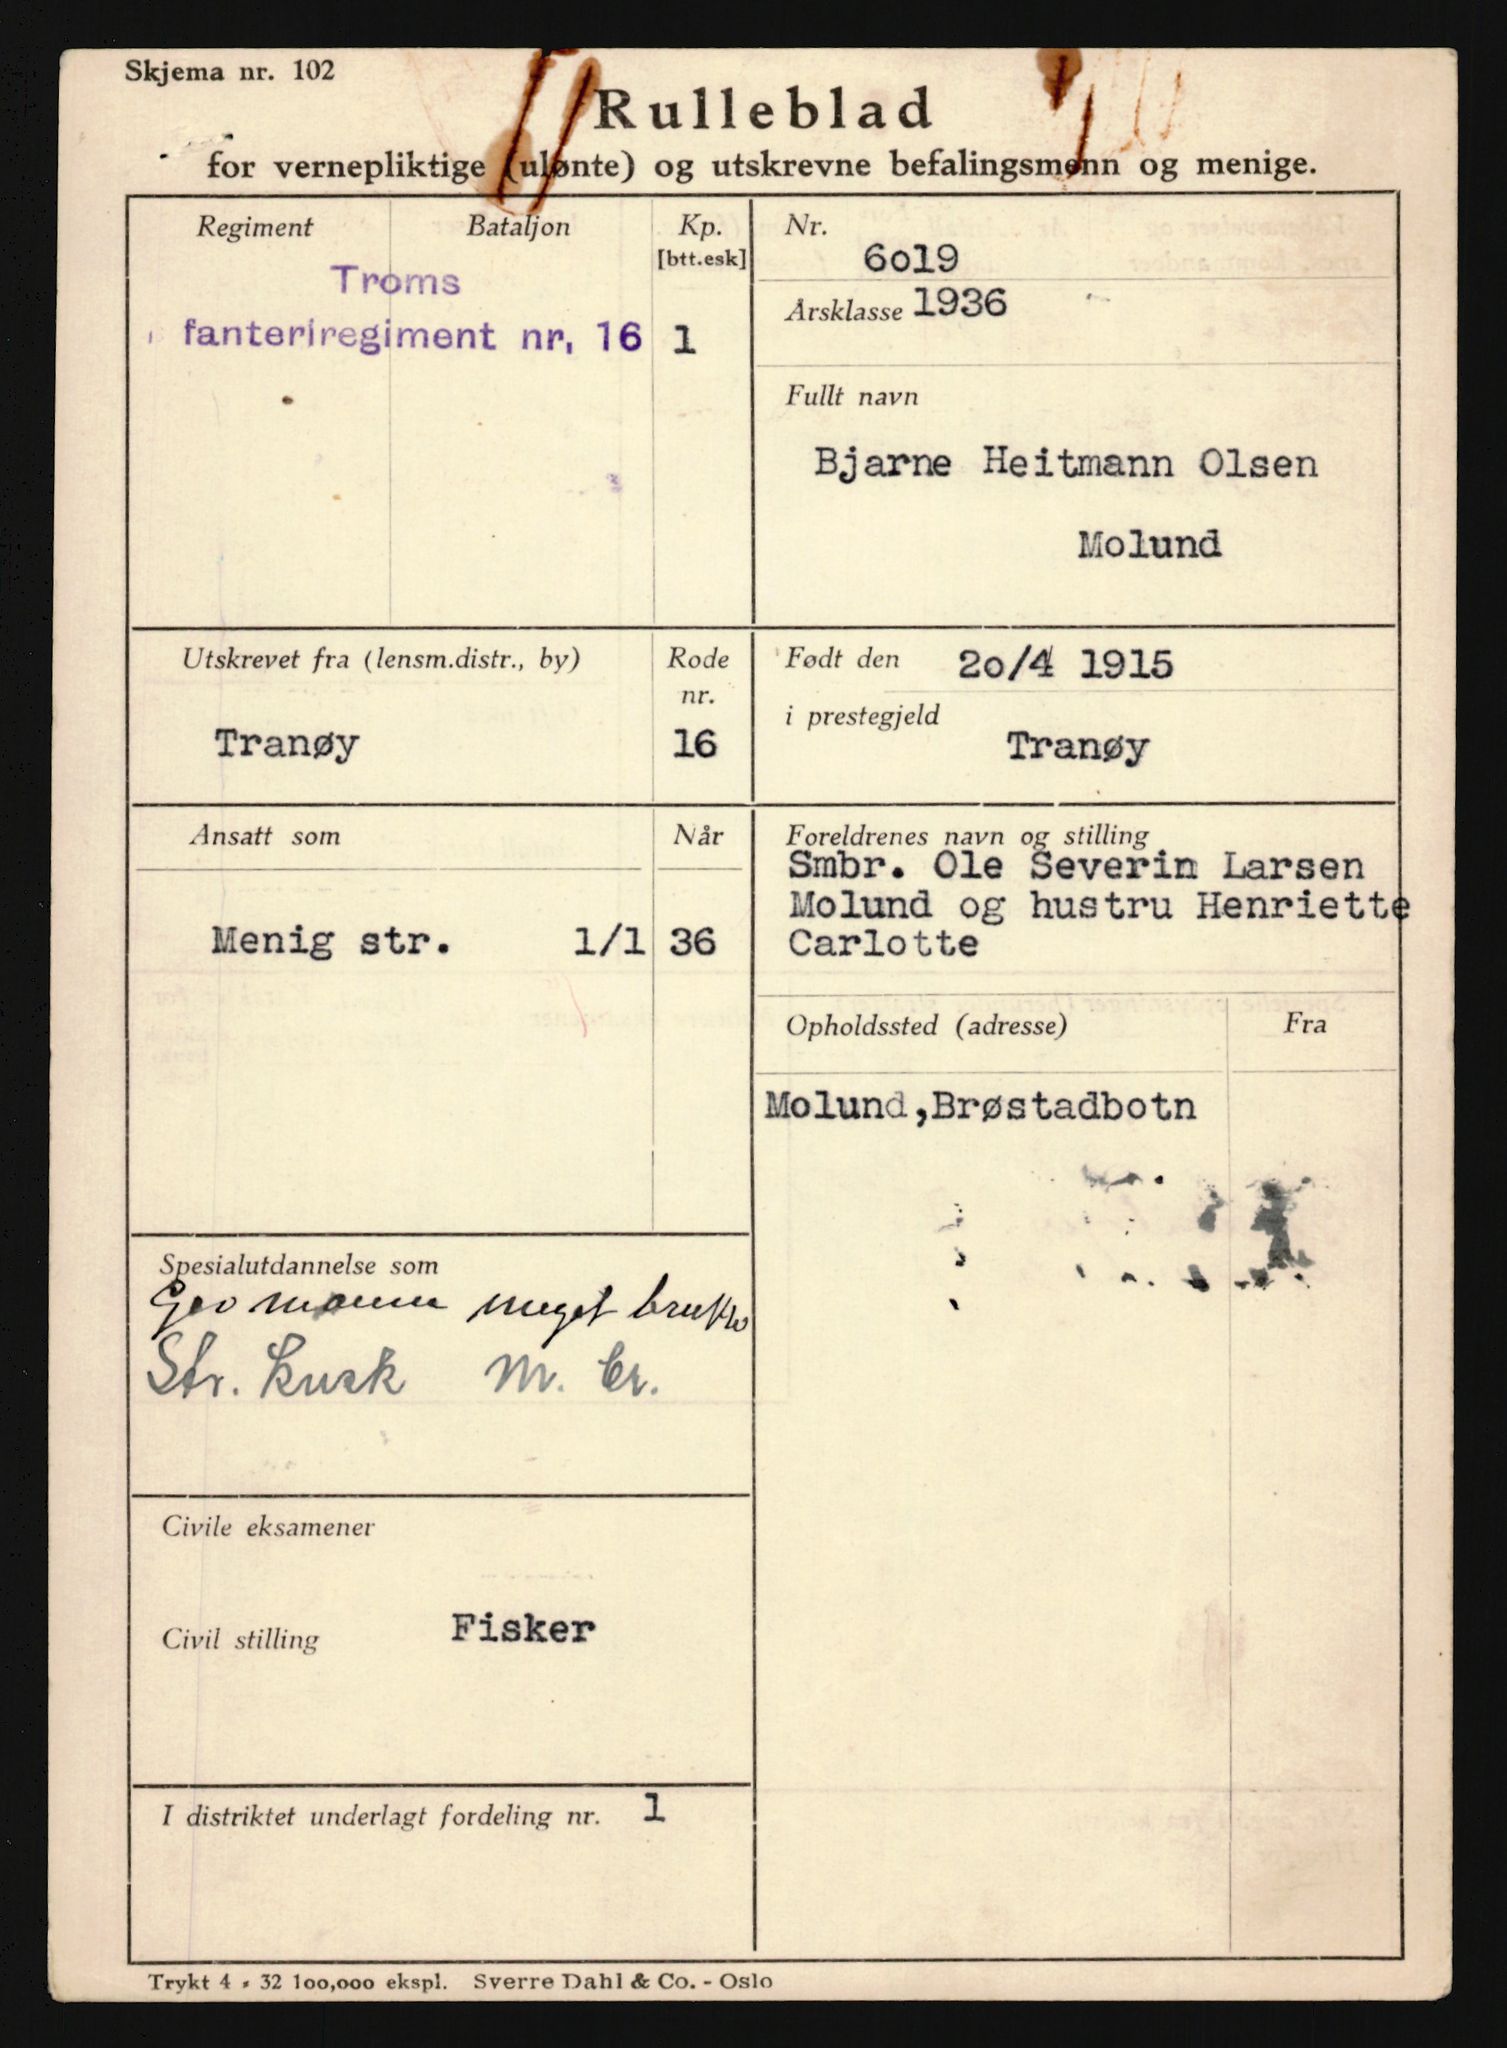 Skjema nr. 102
Rulleblad
for vernepliktige (ulønte) og utskrevne befalingsmenn og menige.
Regiment Bataljon Kp.
[btt.esk]
Troms
fanteriregiment nr. 16 1
Nr.
6019
Årsklasse 1936
Fullt navn
Bjarne Heitmann Olsen
Molund
Utskrevet fra (lensm.distr., by) Rode
nr.
Tranøy 16
Født den 20/4 1915
i prestegjeld
Tranøy
Ansatt som Når
Menig str. 1/1 36
Foreldrenes navn og stilling
Smbr. Ole Severin Larsen
Molund og hustru Henriette
Carlotte
Opholdssted (adresse) Fra
Molund,Brøstadbotn
Spesialutdannelse som
meget
Str. kusk M. br.
Civile eksamener
Civil stilling Fisker
I distriktet underlagt fordeling nr. 1
Trykt 4 - 32 100,000 ekspl. Sverre Dahl & Co. - Oslo